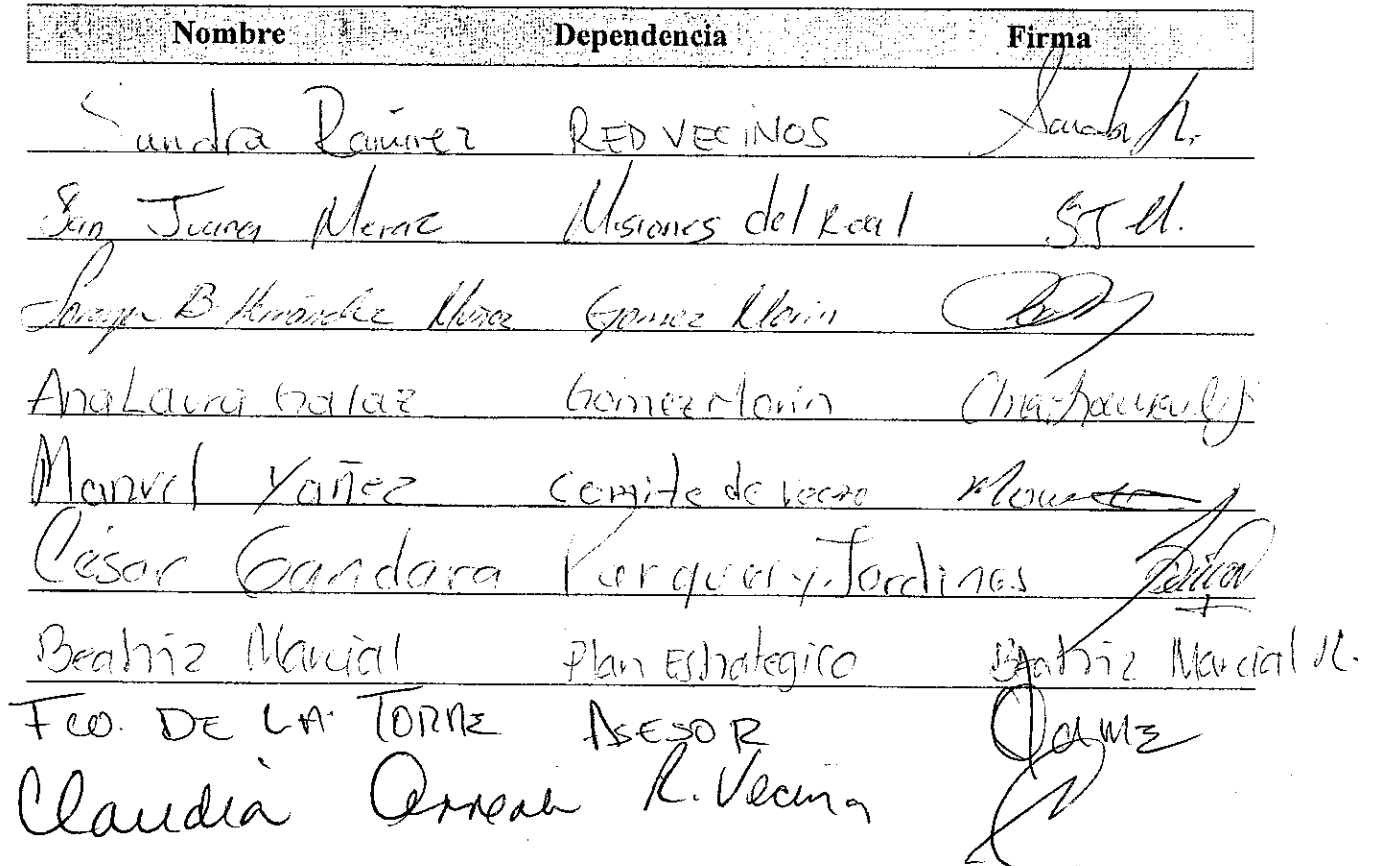 Nombre Dependencia Firma
Sandra Ramírez RED VECINOS Sandra R.
San Juana Meraz Misiones del Real SJM.
Soraya B Hernández Muñoz Gomez Morin
Ana Laura Galaz Gómez Morín
Manuel Yañez comite de vecino
César Gandara Parques y Jardines
Beatriz Marcial Plan Estrategico Beatriz Marcial M.
Fco. DE LA TORRE ASESOR
Claudia R. Vecina